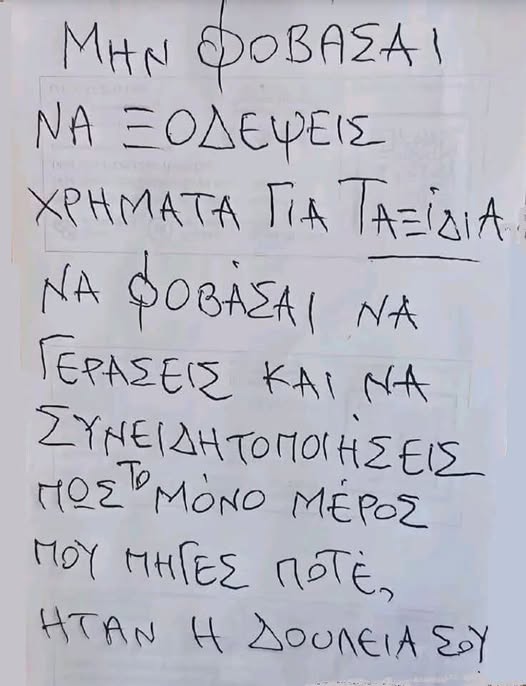 ΜΗΝ ΦΟΒΑΣΑΙ
ΝΑ ΞΟΔΕΨΕΙΣ
ΧΡΗΜΑΤΑ ΓΙΑ ΤΑΞΙΔΙΑ
ΝΑ ΦΟΒΆΣΑΙ ΝΑ
ΓΕΡΑΣΕΙΣ ΚΑΙ ΝΑ
ΣΥΝΕΙΔΗΤΟΠΟΙΉΣΕΙΣ
ΠΩΣ ΤΟ ΜΌΝΟ ΜΈΡΟΣ
ΠΟΥ ΠΗΓΕΣ ΠΟΤΈ,
ΗΤΑΝ Η ΔΟΥΛΕΙΑ ΣΟΥ